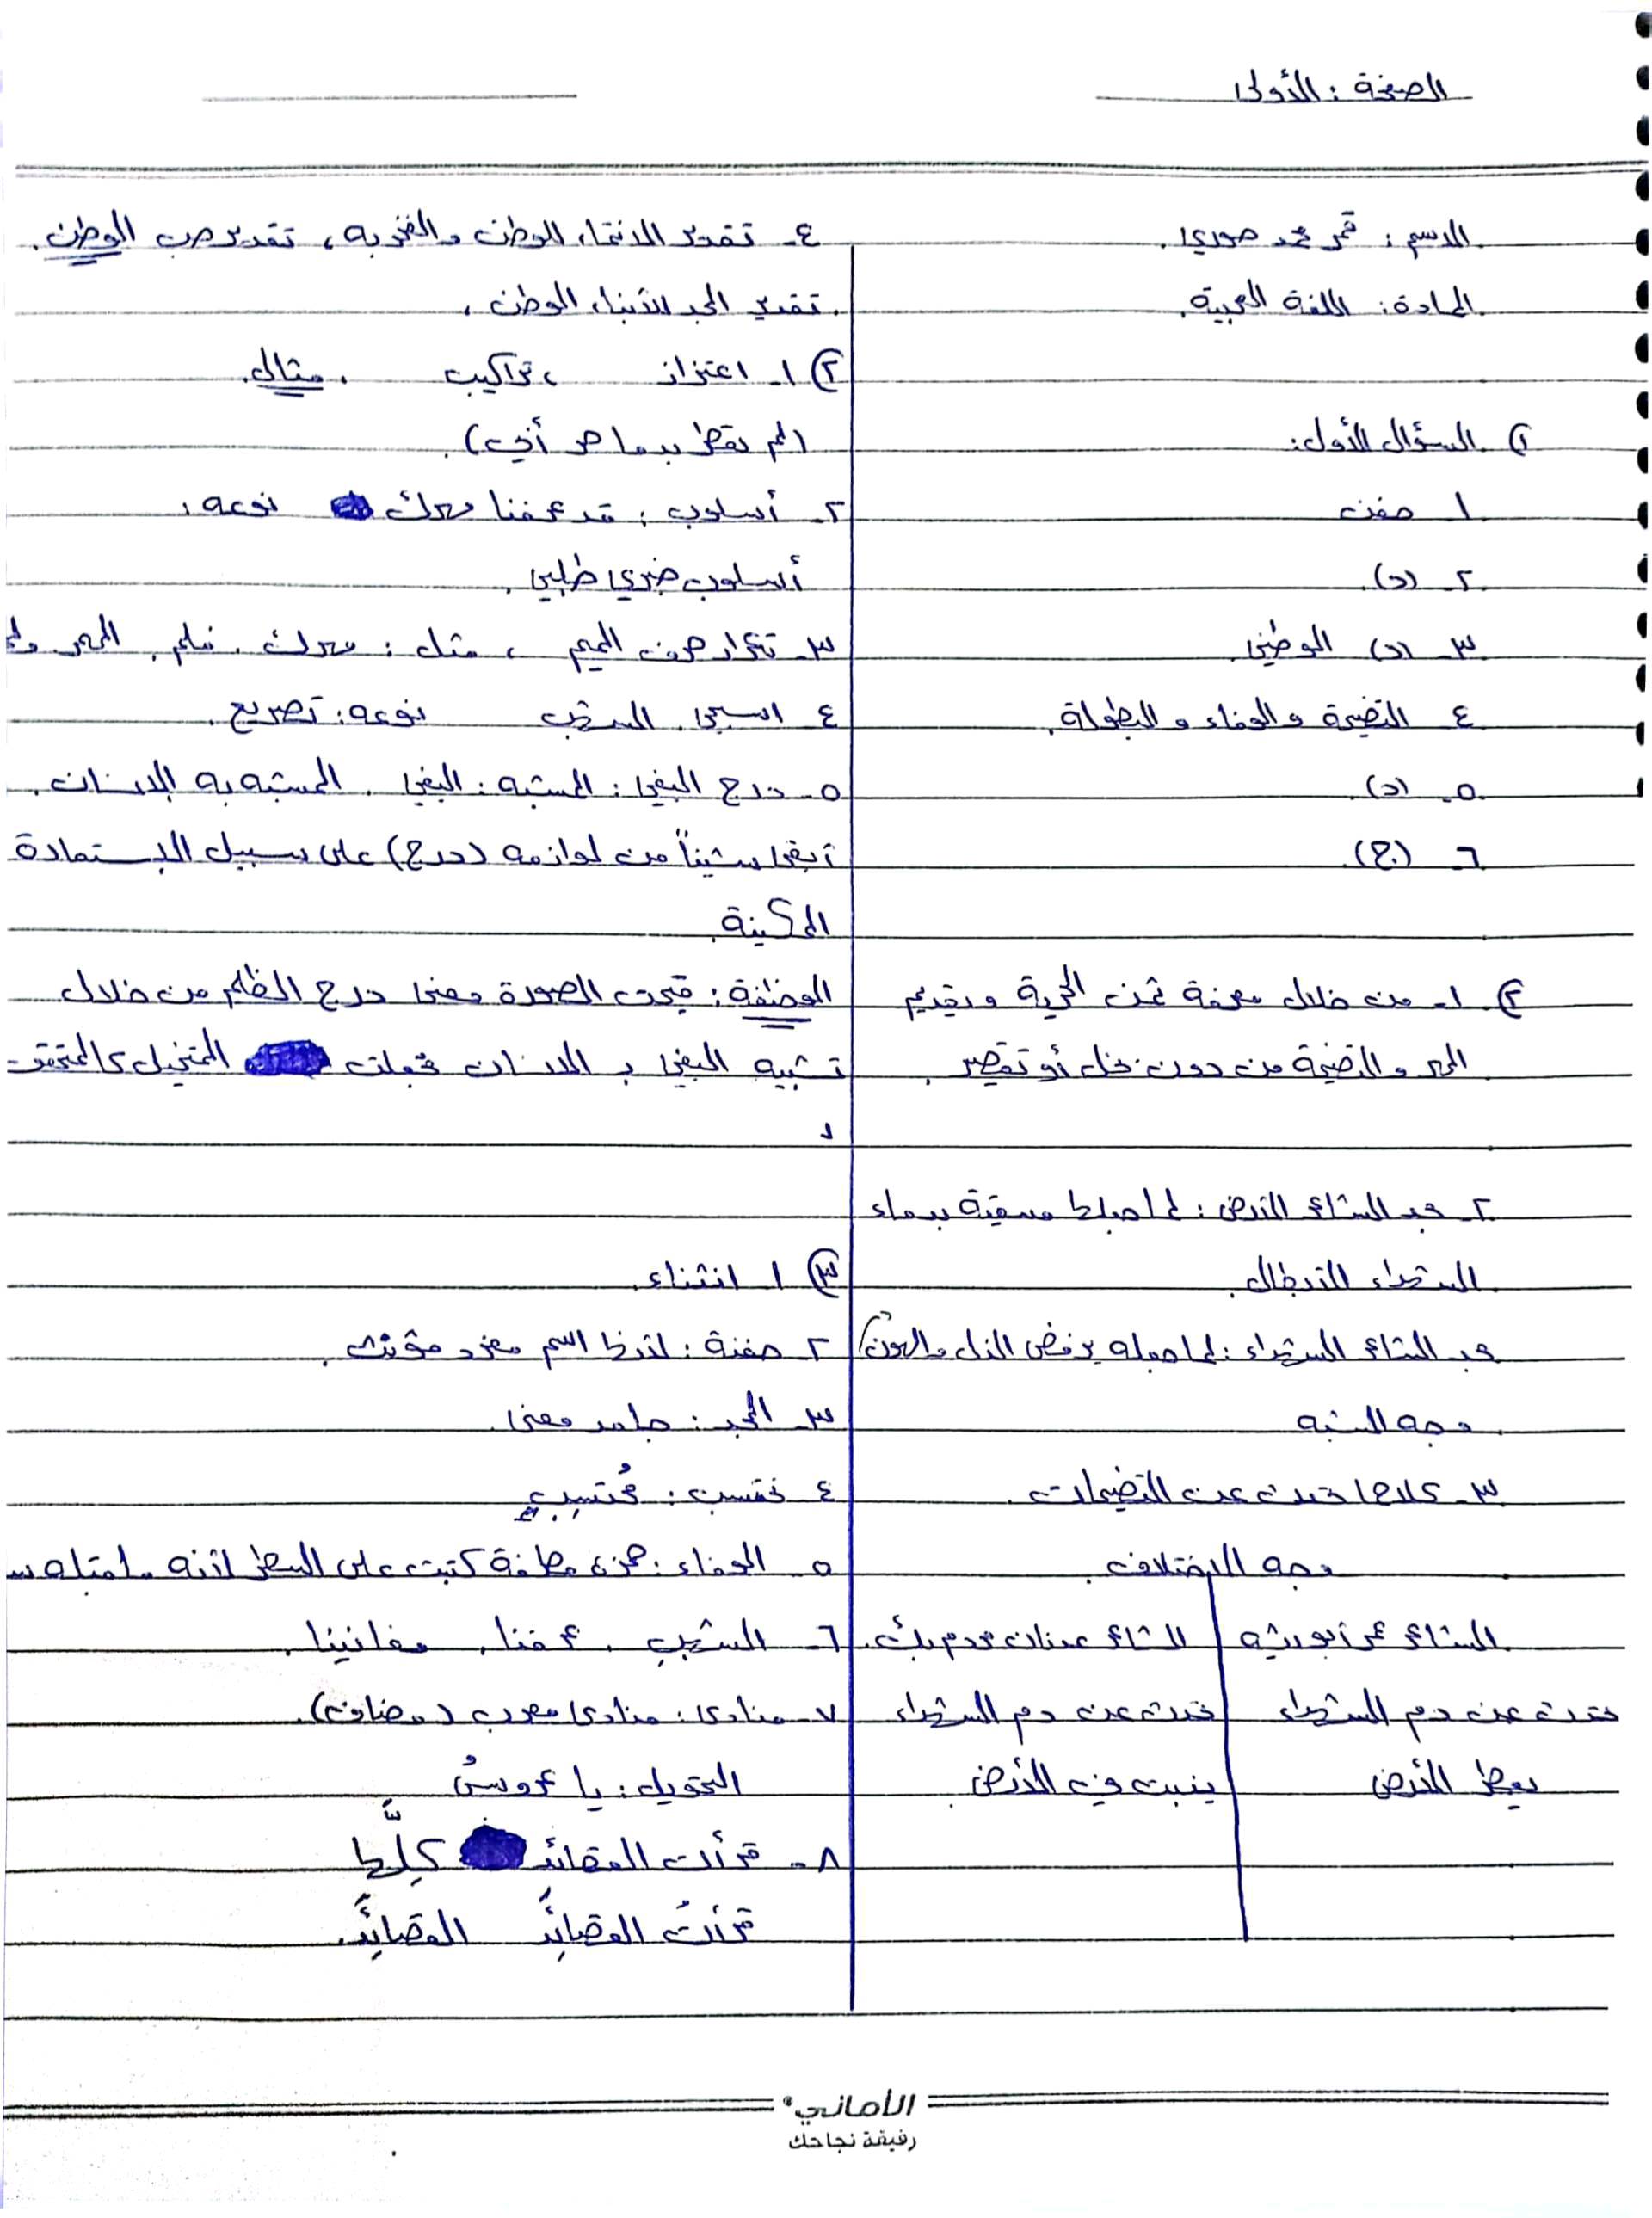 الصفحة : الأولى
الاسم : قمر محمد صوري.
المادة : اللغة العربية.
١) السؤال الأول :
١ صفن
٢- (د).
٣- (د) الوطني.
٤ التضحية والوفاء والبطولة.
٥- (د).
٦- (ج).
٢) ١- من خلال معرفة ثمن الحرية وتقديم
المهر والتضحية من دون بخل أو تقصير.
٢- عند الشاعر الأرض : لماجبلها مسقية بدماء
الشهداء الأبطال.
عند الشاعر الشهداء : يرفض الذل والهون
وجه الشبه
٣- كلاهما تحدث عن التضحيات.
وجه الاختلاف.
الشاعر عمر أبو ريشة | الشاعر عدنان مردم بك.
تحدث عن دم الشهداء | تحدث عن دم الشهداء
يعطر الأرض | ينبت في الأرض.
٤- تقدير الانتماء الوطن والفخر به، تقدير حب الوطن.
تقدير لأبناء الوطن.
٢) ١- اعتزاز ، تراكيب . مثال.
(لم نقطر بدما حر أبي).
٢- أسلوب : قد عرفنا مهرك نوعه :
أسلوب خبري طلبي.
٣- تكرار حرف الميم ، مثل : مهرك . فلم . المهر ولم
٤ نوعه : تصريح.
٥- درج البغي : المشبه : البغي . المشبه به الإنسان.
أبقى شيئاً من لوازمه (درج) على سبيل الاستعارة
المكنية.
الوظيفة : الصورة معنى درج الظلم من خلال
تشبيه البغي بـ الانسان فجعلت المتخيل كالمتحقق
.
٣) ١ انثناء.
٢ حفنة : لأنها اسم مفرد مؤنث.
٣- المجد : جامد معنى.
٤ نحتسب : مُحتسِب
٥- الوفاء : همزة متطرفة كتبت على السطر لأنه ماقبله
٦- الشهب . عرفنا . مغانينا.
٧- منادى : منادى معرب (مضاف).
التحويل : يا عروسُ
٨- قرأت القصائد كلَّها
قرأتُ القصائدَ القصائدَ.
الأماني
رفيقة نجاحك